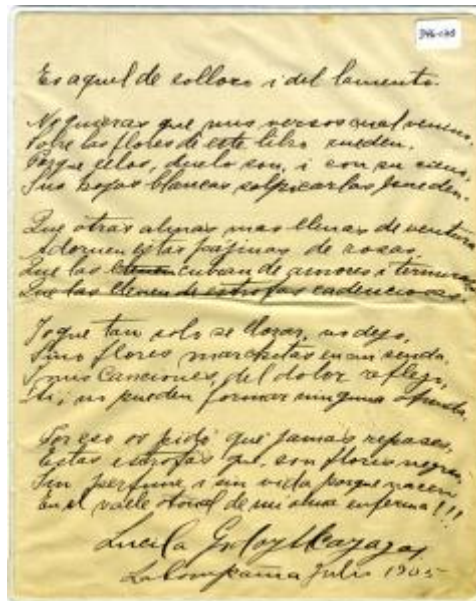 346-(30)
Es aquel de sollozo i del lamento.
No quieras que mis versos cual veneno,
Sobre las flores de este libro rueden.
Porque ellos, duelo son, i con su cieno,
Sus hojas blancas salpicarlas pueden.
Que otras almas mas llenas de ventura
Adornen estas pájinas de rosas
Que las cubran de amores i ternuras
Que las llenen de estrofas cadenciosas
Yo que tan solo se llorar, no dejo,
Sino flores marchitas en mi senda.
I mis canciones, del dolor reflejo,
Si, no pueden formar ninguna ofrenda.
Por eso os pido que jamás repases,
Estas estrofas que, son flores negras,
Sin perfume, i sin vida porque nacen
En el valle otoñal de mi alma enferma!!!
Lucila Godoy Alcayaga
La Compañia Julio 1905